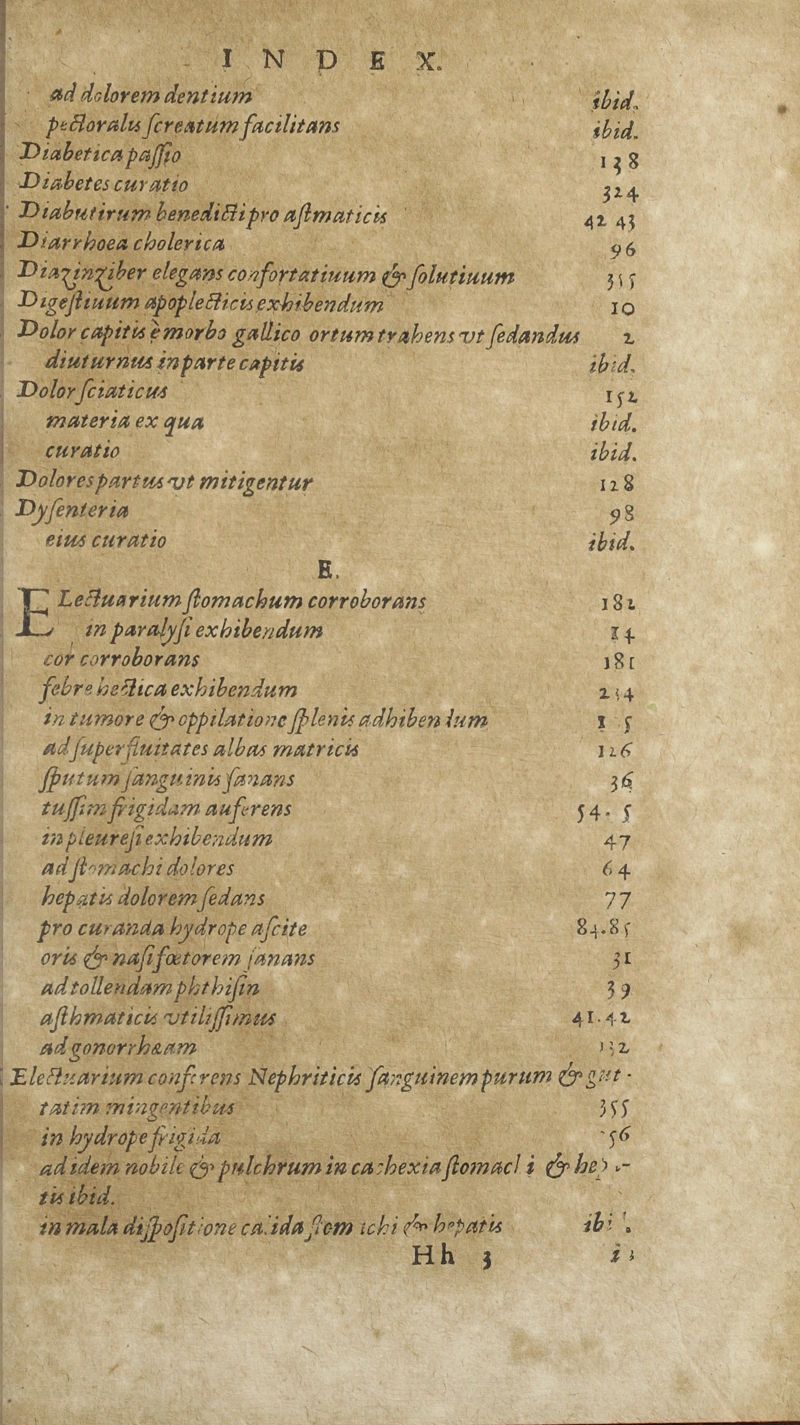 INDEX.
ad dolorem dentium ibid.
pectoralis screatum facilitans ibid.
Diabetica passio 138
Diabetes curatio 324
Diabutirum benedicti pro asmaticis 42 43
Diarrhoea cholerica 96
Diazinziber elegans confortatiuum & solutiuum 355
Digestiuum apoplecticis exhibendum 10
Dolor capitis è morbo gallico ortum trahens vt sedandus 2
diuturnus in parte capitis ibid.
Dolor sciaticus 152
materia ex qua ibid.
curatio ibid.
Dolores partus vt mitigentur 128
Dysenteria 98
eius curatio ibid.
E.
ELectuarium stomachum corroborans 182
in paralysi exhibendum 14
cor corroborans 181
febre hectica exhibendum 234
in tumore & oppilatione splenis adhibendum
ad superfluitates albas matricis 126
sputum sanguinis sanans 36
tussim frigidam auferens 54. 5
in pleuresi exhibendum 47
ad stomachi dolores 64
hepatis dolorem sedans 77
pro curanda hydrope ascite 84.85
oris & nasi foetorem sanans 31
ad tollendam phthisin 39
asthmaticis vtilissimus 41.42
ad gonorrhæam 132
Electuarium conferens Nephriticis sanguinem purum & gut-
tatim mingentibus 355
in hydrope frigida
ad idem nobile & pulchrum in cachexia stomachi & hep
tis ibid.
in mala dispositione calida stomachi & hepatis
Hh 3